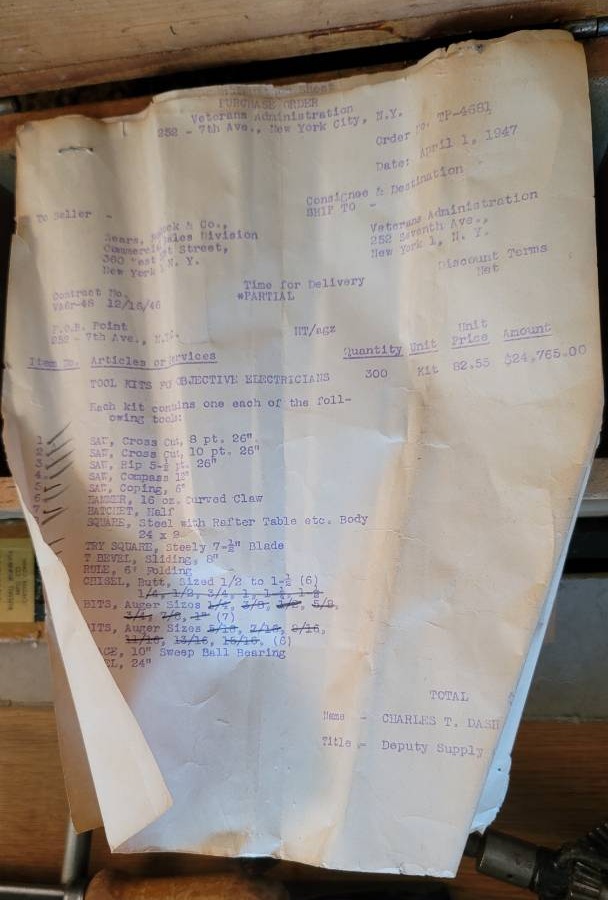 PURCHASE ORDER
Veterans Administration
252 - 7th Ave., New York City, N.Y.
Order No. TP-4681
Date: April 1, 1947
Consignee & Destination -
SHIP TO -
To Seller -
Sears, & Co.,
Sales Division
Commerce Street,
360 West
New York N. Y.
Veterans Administration
252 Seventh Ave.,
New York 1, N. Y.
Discount Terms
Net
Time for Delivery
*PARTIAL
Contract No.
VAor-48 12/16/46
F.O.B. Point
252 - 7th Ave., N.Y.
HT/agz
Item No. Articles or Services Quantity Unit Unit Price Amount
TOOL KITS FO OBJECTIVE ELECTRICIANS 300 Kit 82.55 $24,765.00
Each kit contains one each of the foll-
owing tools:
1 SAW, Cross Cut, 8 pt. 26"
2 SAW, Cross Cut, 10 pt. 26"
3 SAW, Rip 5-½ pt. 26"
4 SAW, Compass 12"
5 SAW, Coping, 6"
6 HAMMER, 16 oz. Curved Claw
7 HATCHET, Half
SQUARE, Steel with Rafter Table etc. Body
24 x 2
TRY SQUARE, Steely 7-½" Blade
T BEVEL, Sliding, 8"
RULE, 6' Folding
CHISEL, Butt, Sized 1/2 to 1-½ (6)
1/4, 1/2, 3/4, 1,
BITS, Auger Sizes 1/4, 3/8, 1/2, 5/8,
3/4, 7/8, 1" (7)
ITS, Auger Sizes 5/16, 7/16, 9/16,
11/16, 13/16, 15/16. (6)
CE, 10" Sweep Ball Bearing
EL, 24"
TOTAL $
Name - CHARLES T. DASH
Title - Deputy Supply